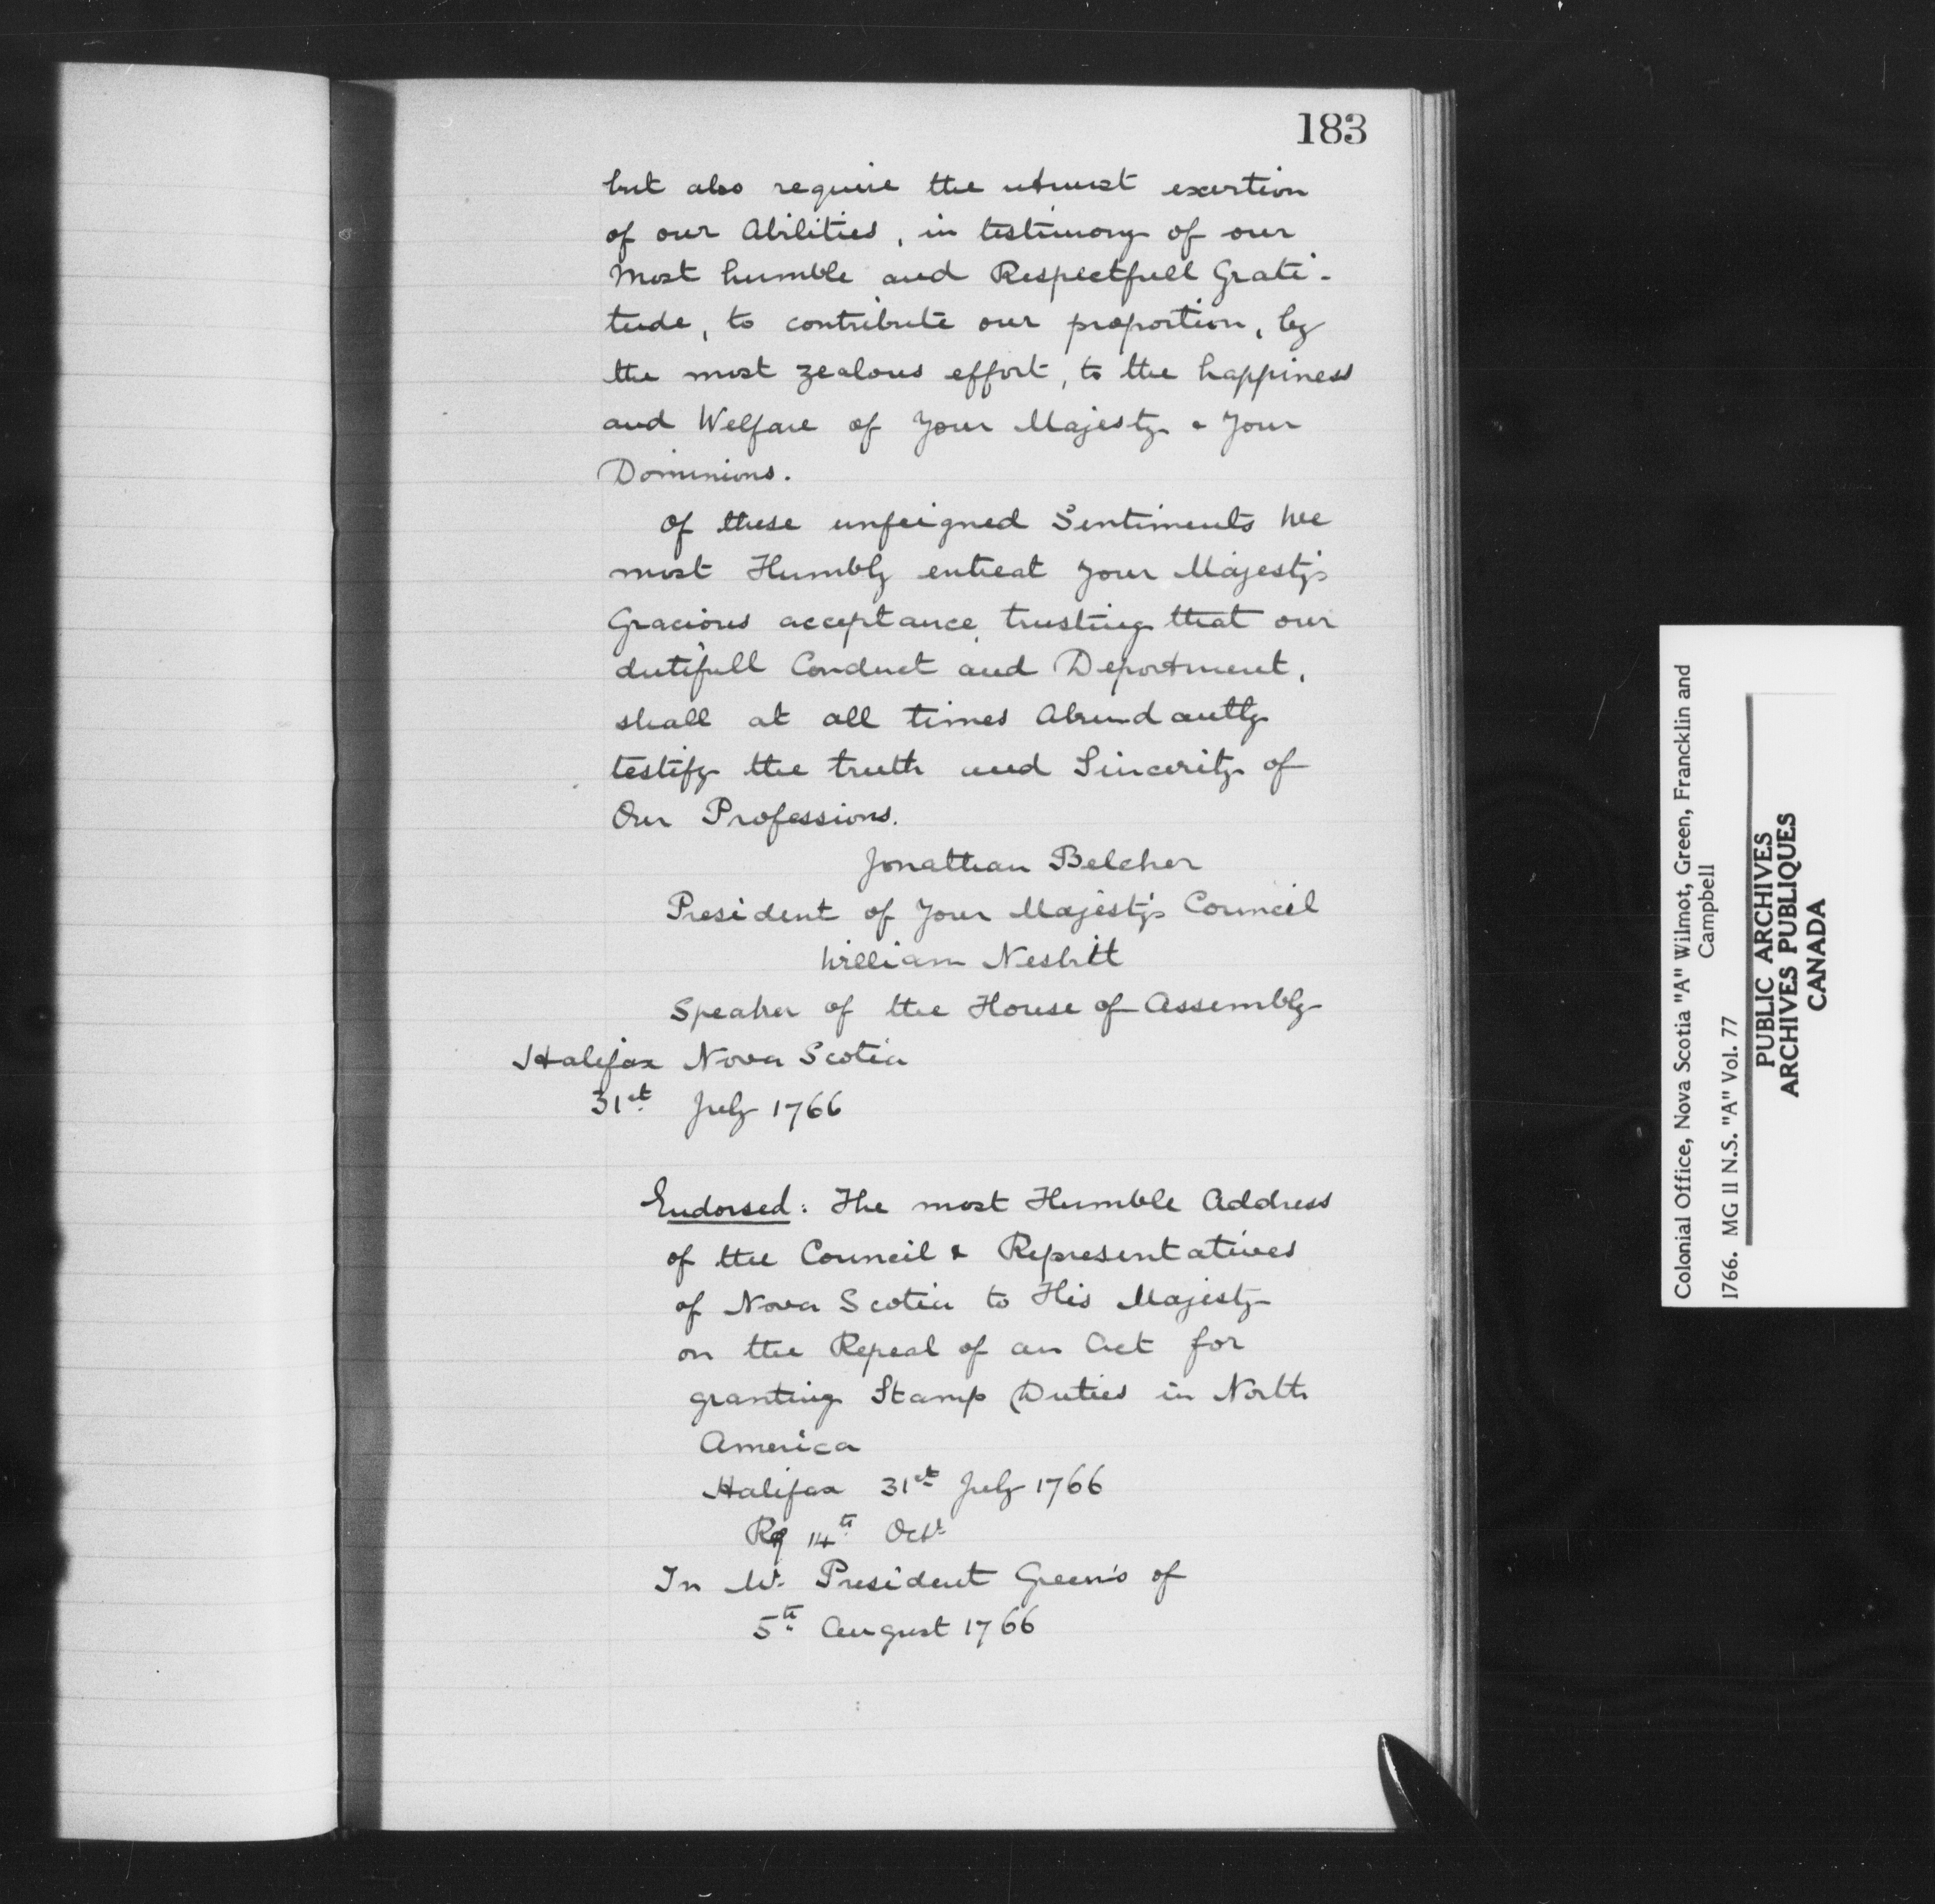 183
but also require the utmost exertion
of our Abilities, in testimony of our
Most humble and Respectfull Grati-
tude, to contribute our proportion, by
the most zealous effort, to the happiness
and Welfare of Your Majesty & Your
Dominions.
Of these unfeigned Sentiments We
most Humbly entreat Your Majesty's
Gracious acceptance, trusting that our
dutifull Conduct and Deportment,
shall at all times Abundantly
testify the truth and Sincerity of
Our Professions.
Jonathan Belcher
President of Your Majesty's Council
William Nesbitt
Speaker of the House of Assembly
Halifax Nova Scotia
31st July 1766
Endorsed: The most Humble Address
of the Council & Representatives
of Nova Scotia to His Majesty
on the Repeal of an Act for
granting Stamp Duties in North
America
Halifax 31st July 1766
14th Octr
In Mr. President Green's of
5th August 1766
Colonial Office, Nova Scotia "A" Wilmot, Green, Francklin and
Campbell
1766. MG 11 N.S. "A" Vol. 77
PUBLIC ARCHIVES
ARCHIVES PUBLIQUES
CANADA